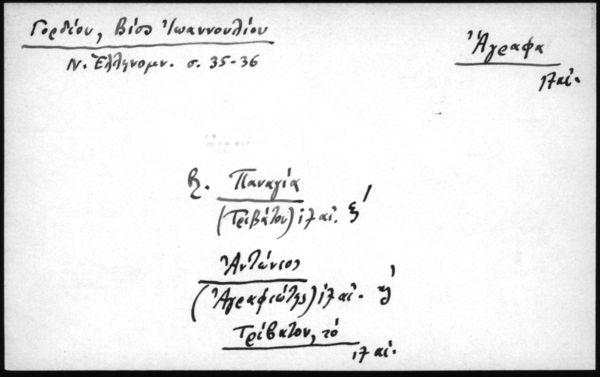 Γορδίου, Βίος Ἰωαννουλίου
Ν. Ἑλληνομν. σ. 35-36
Ἄγραφα
17 αἰ.
β. Παναγία
(Τριβάτου) 17 αἰ.
Ἀντώνιος
(Ἀγραφιώτης) 17 αἰ.
Τρίβατον, τό
17 αἰ.